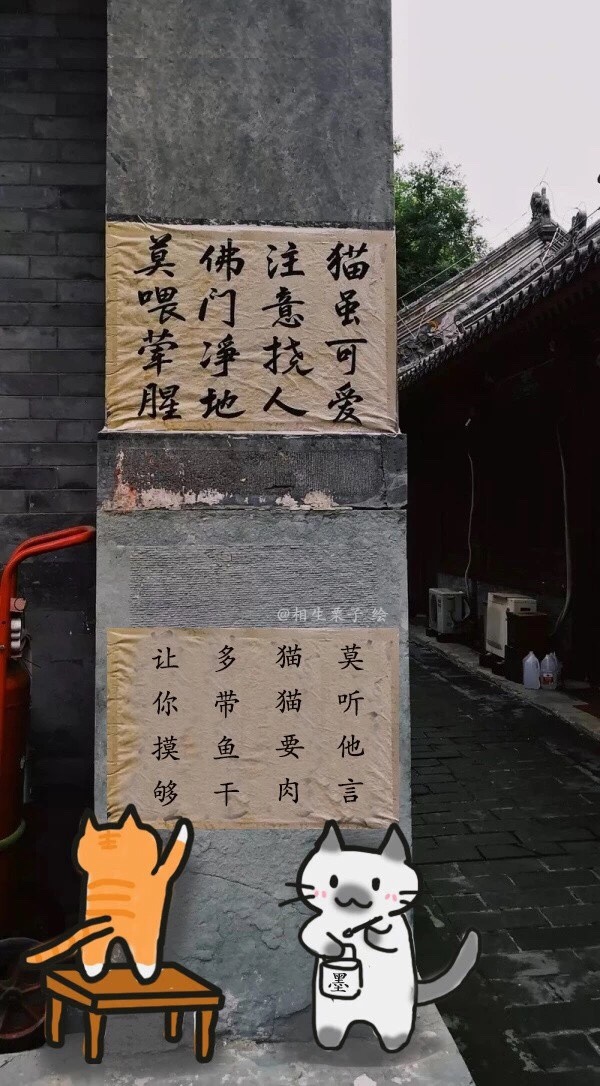 猫虽可爱
注意挠人
佛门净地
莫喂荤腥
@相生栗子 绘
莫听他言
猫猫要肉
多带鱼干
让你摸够
墨